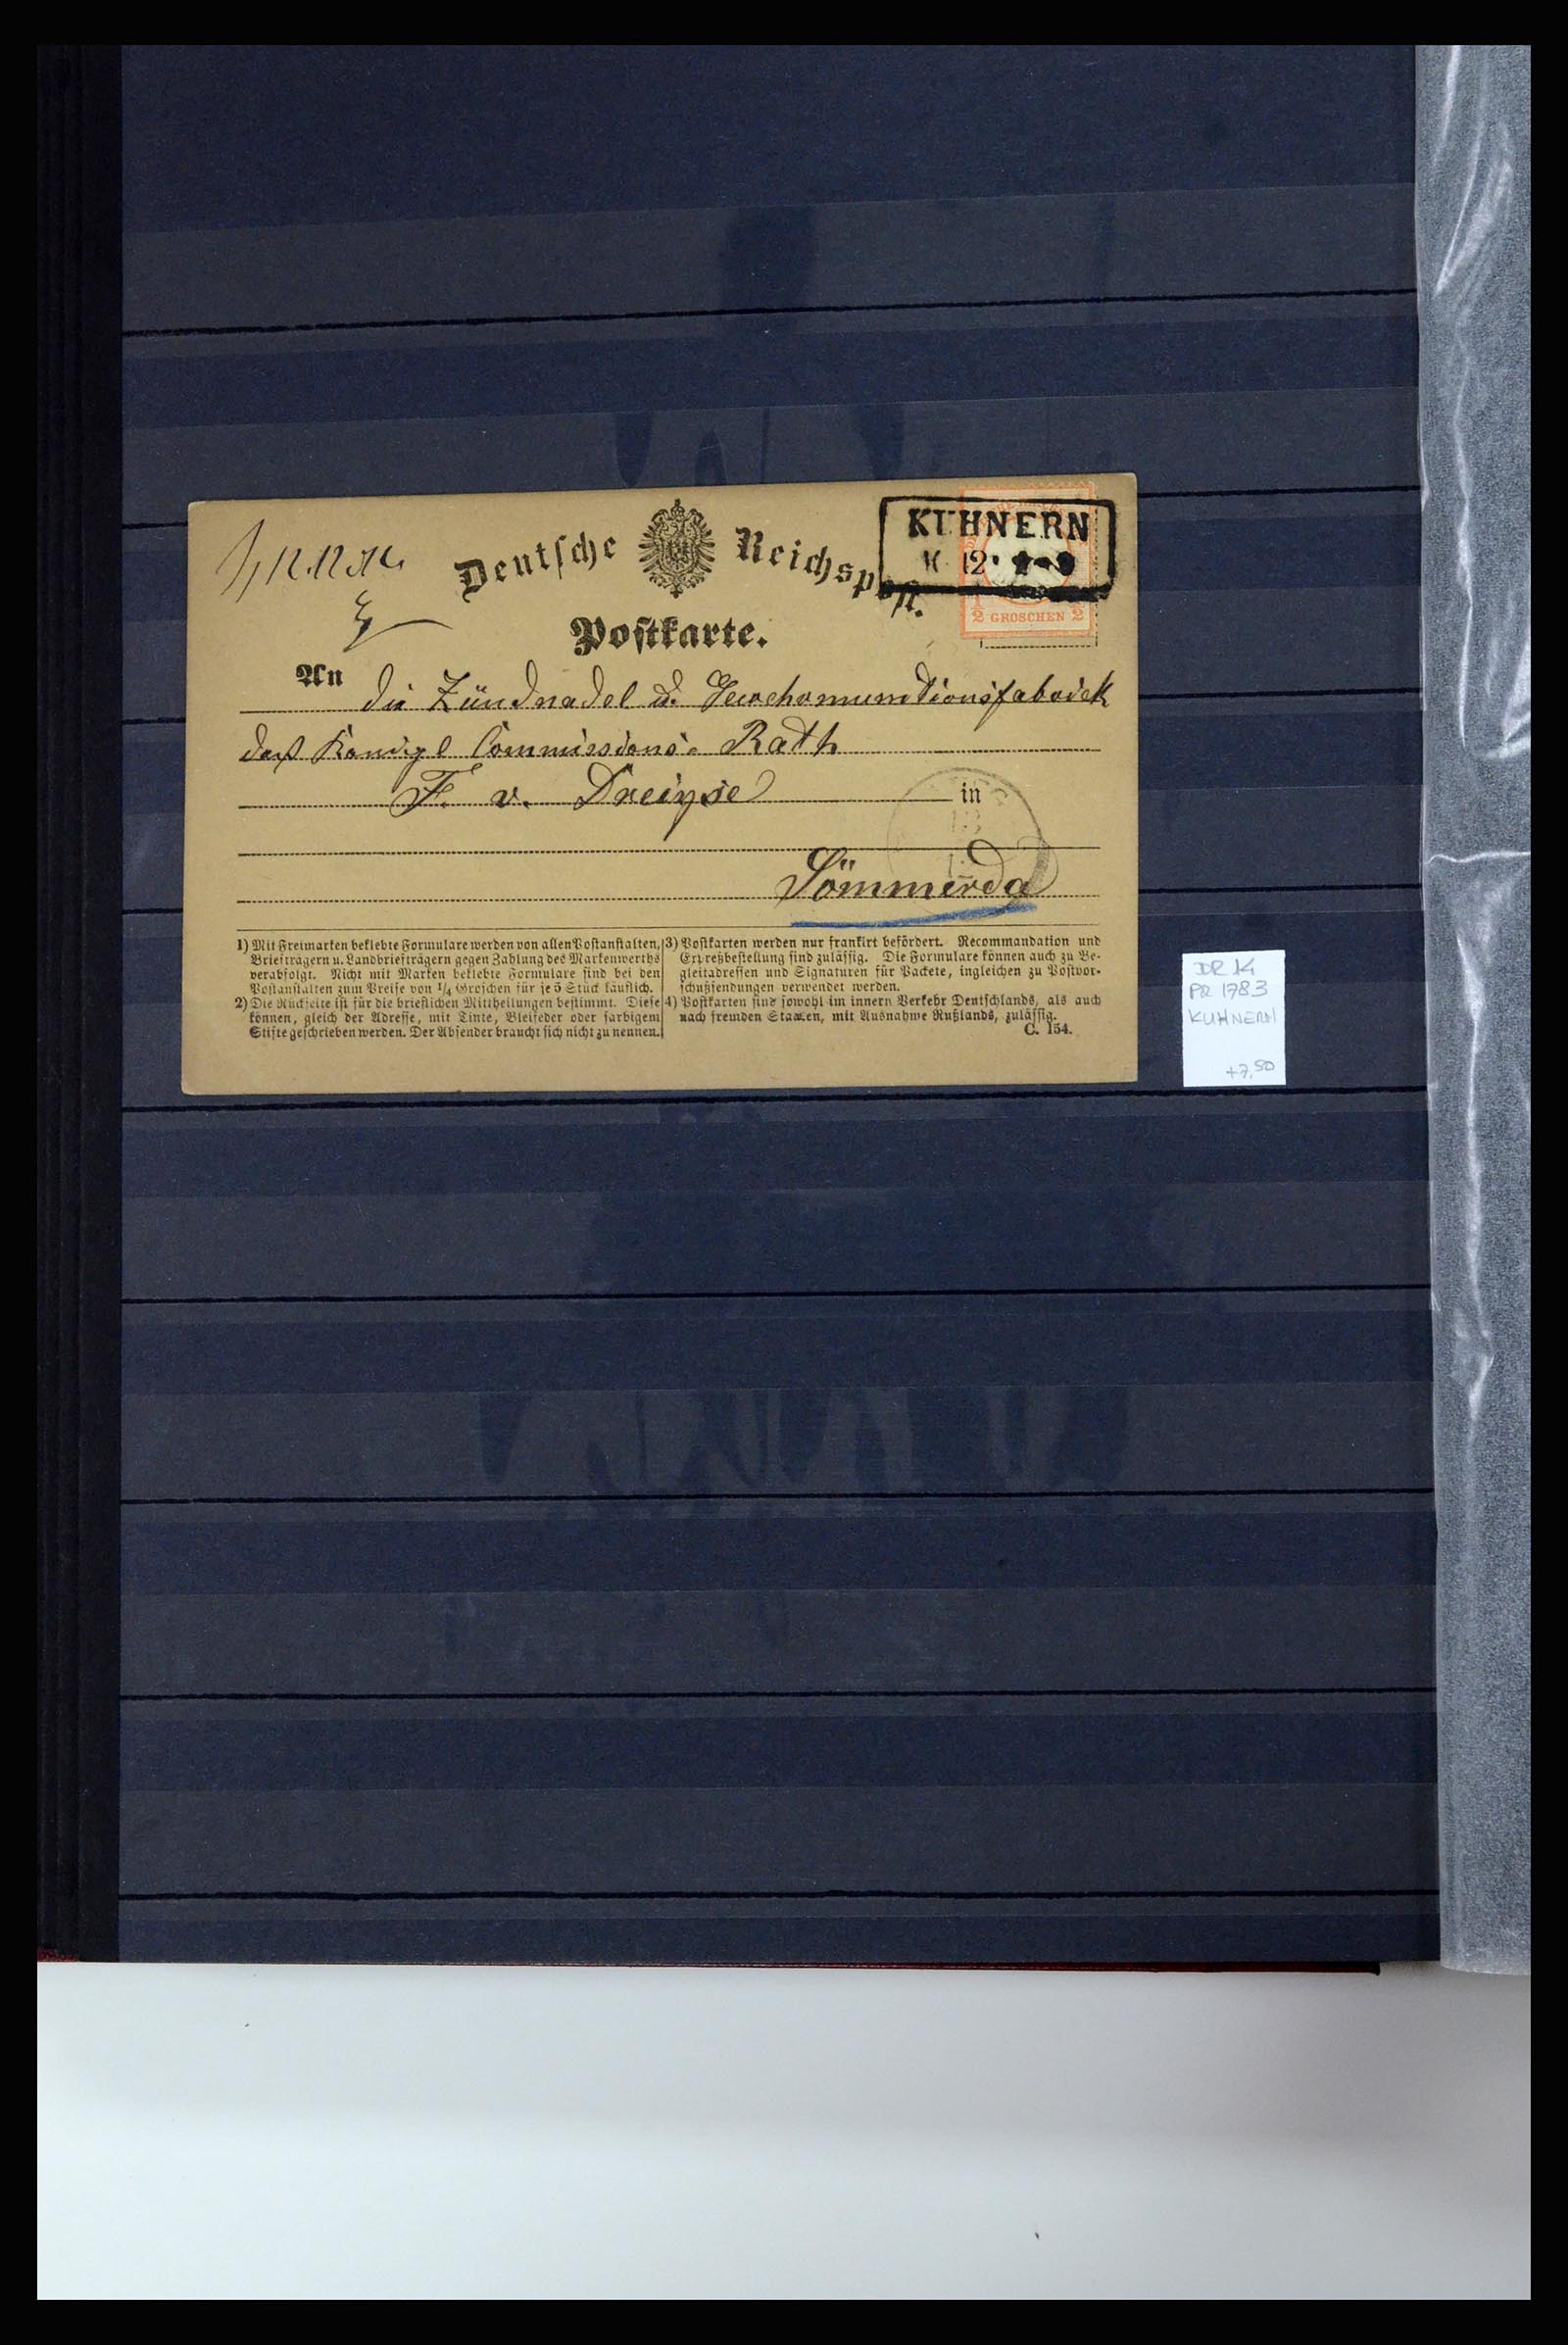 Deutsche Reichspost.
KUHNERN
12
1/2 GROSCHEN 1/2
Postkarte.
An die Zündnadel u.
Commissions-Rath
F. v. Dreiyse
in
Sömmerda
1) Mit Freimarken beklebte Formulare werden von allen Postanstalten,
Briefträgern u. Landbriefträgern gegen Zahlung des Markenwerths
verabfolgt. Nicht mit Marken beklebte Formulare sind bei den
Postanstalten zum Preise von 1/4 Groschen für je 5 Stück käuflich.
2) Die Rückseite ist für die brieflichen Mittheilungen bestimmt. Diese
können, gleich der Adresse, mit Tinte, Bleifeder oder farbigem
Stifte geschrieben werden. Der Absender braucht sich nicht zu nennen.
3) Postkarten werden nur frankirt befördert. Recommandation und
Expreßbestellung sind zulässig. Die Formulare können auch zu Be-
gleitadressen und Signaturen für Packete, ingleichen zu Postvor-
schußsendungen verwendet werden.
4) Postkarten sind sowohl im innern Verkehr Deutschlands, als auch
nach fremden Staaten, mit Ausnahme Rußlands, zulässig.
C. 154.
DR 14
PR 1783
KUHNERN
+7,50